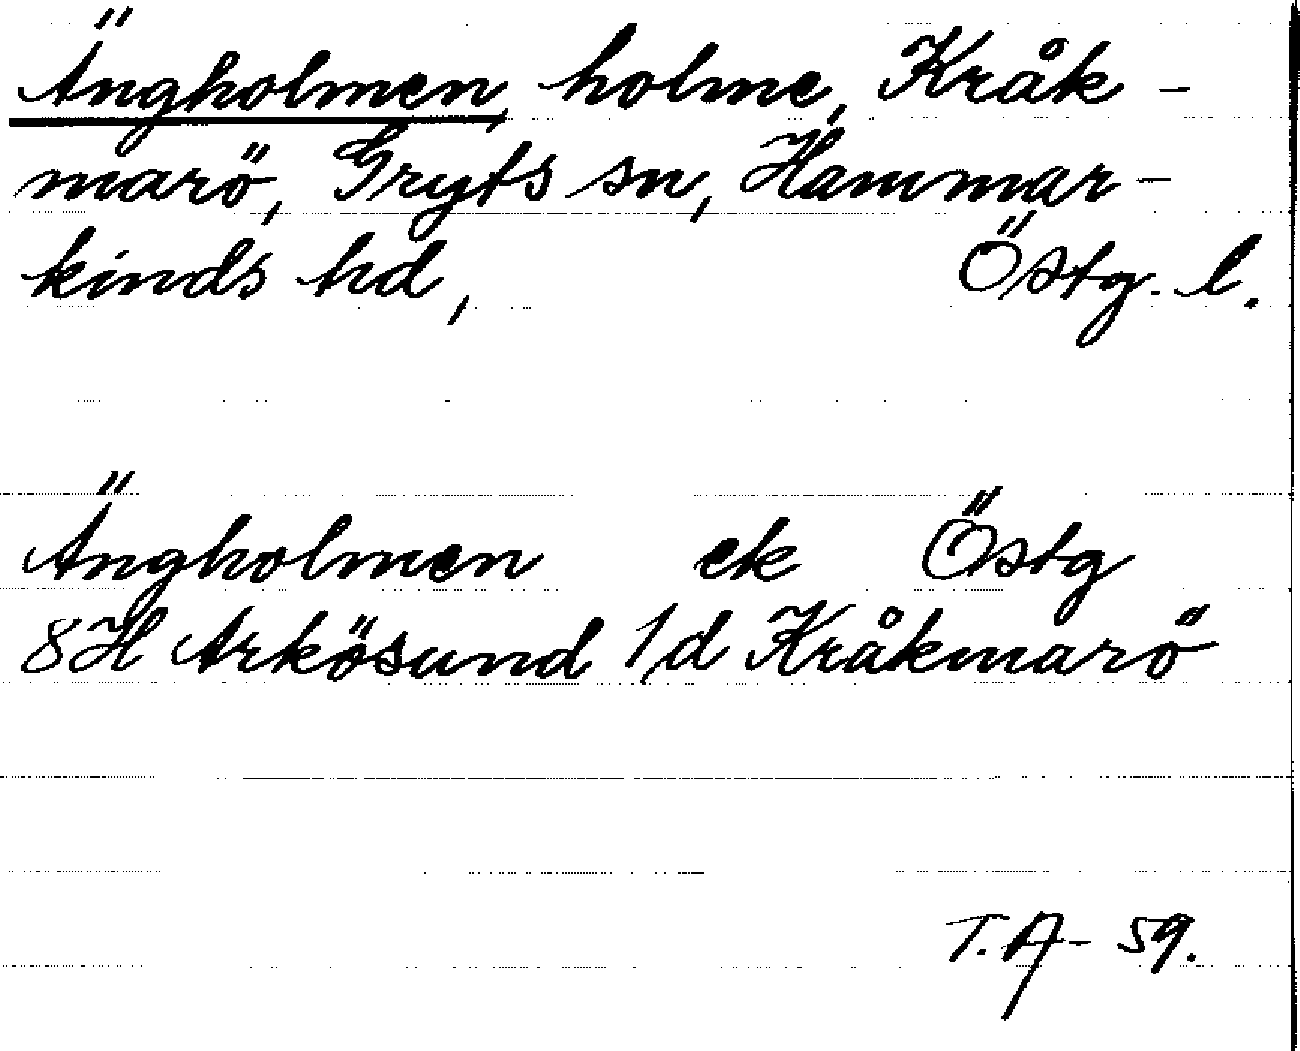 Ängholmen, holme, Kråk-
marö, Gryts sn, Hammar-
kinds hd, Östg. l.
Ängholmen ek Östg
8H Arkösund 1/d Kråkmarö
T.A- 59.